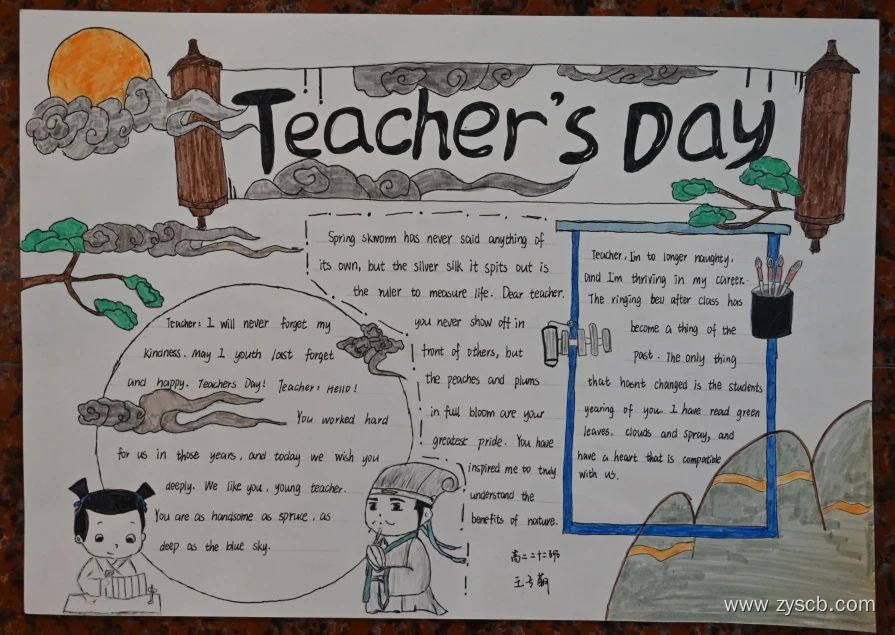 Teacher's Day
Teacher: I will never forget my
kindness. May I youth last forget
and happy. Teachers Day! Teacher: Hello!
You worked hard
for us in those years, and today we wish you
deeply. We like you, young teacher.
You are as handsome as spruce, as
deep as the blue sky.
Spring skworm has never said anything of
its own, but the silver silk it spits out is
the ruler to measure life. Dear teacher.
you never show off in
front of others, but
the peaches and plums
in full bloom are your
greatest pride. You have
inspired me to truly
understand the
benefits of nature.
Teacher, I'm to longer naughty,
and I'm thriving in my career.
The ringing bell after class has
become a thing of the
past. The only thing
that hasn't changed is the students
yearing of you. I have read green
leaves. clouds and spray, and
have a heart that is compatible
with us.
高二二十二班
王
www.zyscb.com